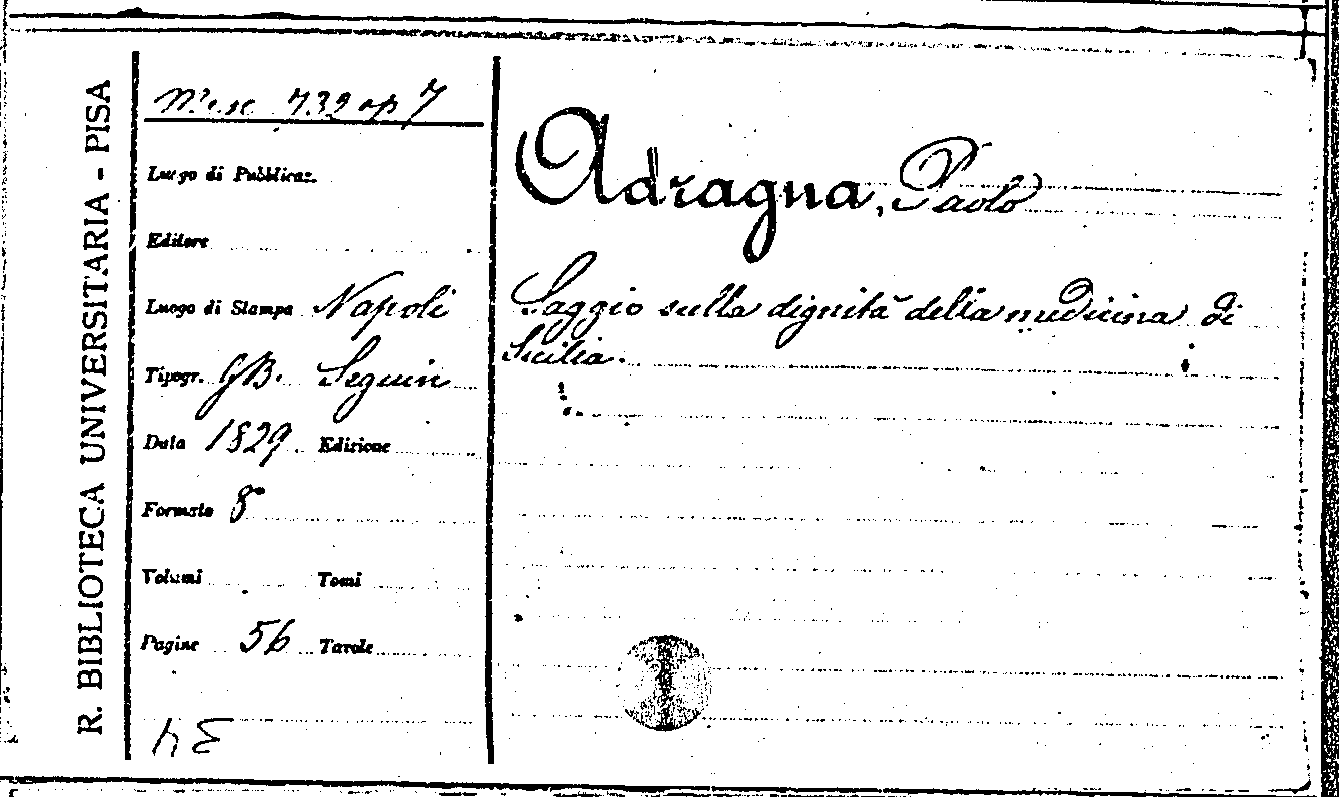 R. BIBLIOTECA UNIVERSITARIA - PISA
Misc 732 op 7
Luogo di Pubblicaz.
Editore
Luogo di Stampa Napoli
Tipogr. GB. Seguin
Data 1829. Edizione
Formato 8°
Volumi Tomi
Pagine 56 Tavole
Adragna, Paolo
Saggio sulla dignità della medicina di
Sicilia.